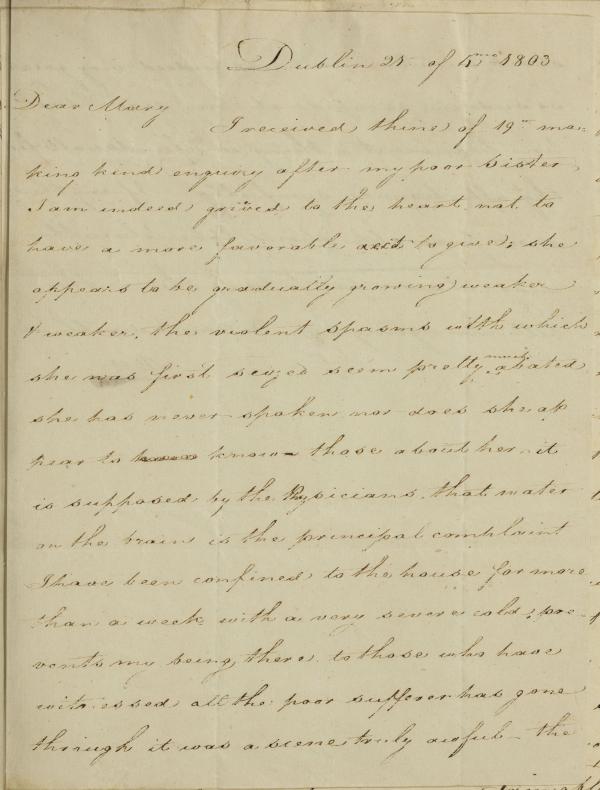 Dublin 21 of 4mo 1803
Dear Mary
I received thine of 19th ma-
king kind enquiry after my poor sister
I am indeed grieved to the heart not to
have a more favorable acct to give, she
appears to be gradually growing weaker
& weaker. the violent spasms with which
she was first seized seem pretty much abated
she has never spoken nor does she ap
pear to know those about her. it
is supposed by the Physicians that water
on the brain is the principal complaint
I have been confined to the house for more
than a week with a very severe cold, pre-
vents my being there. to those who have
witnessed all the poor sufferer has gone
through it was a scene truly awful - the